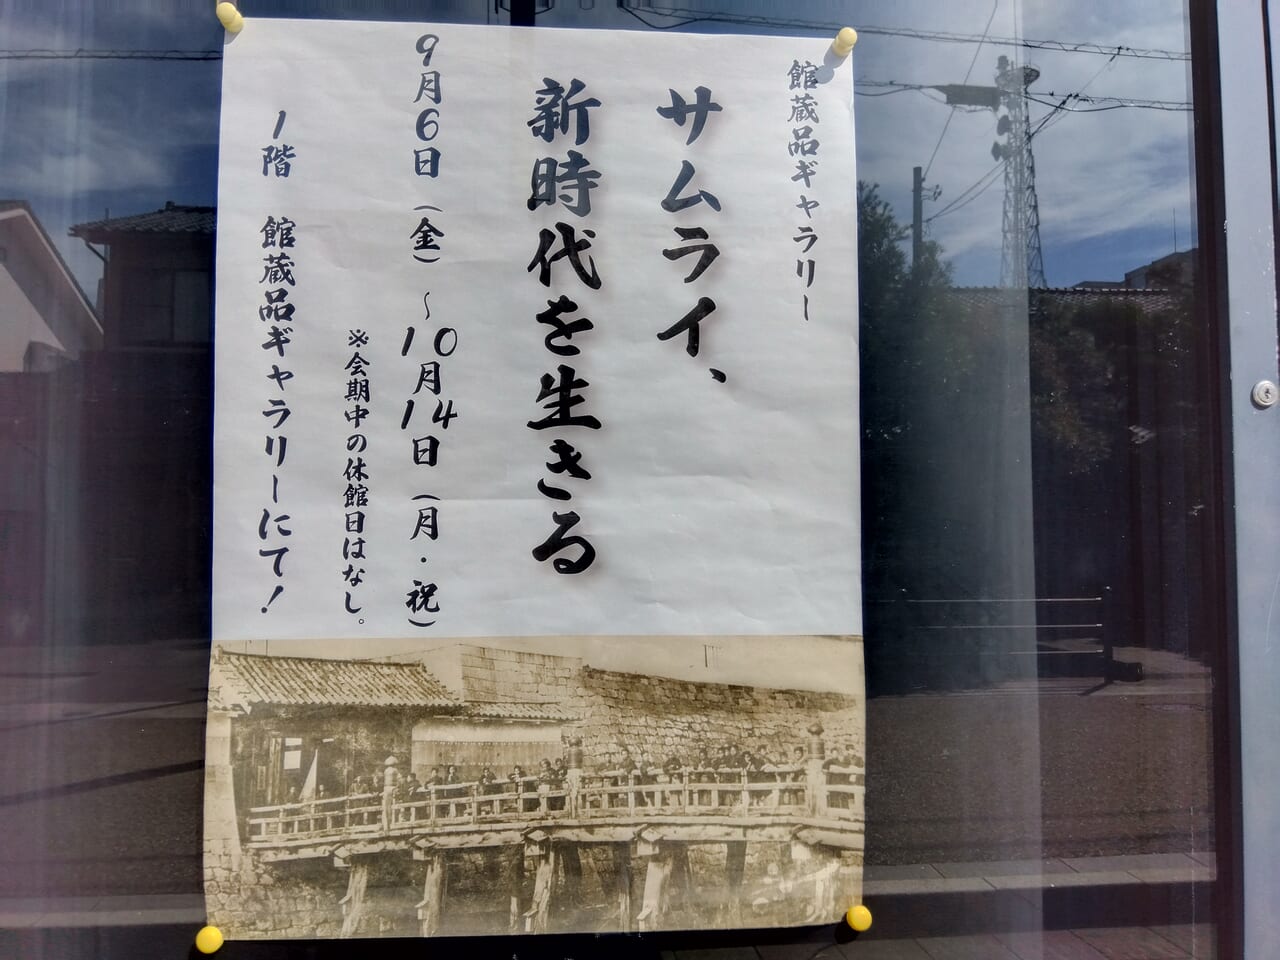 館蔵品ギャラリー
サムライ、
新時代を生きる
9月6日(金)~10月14日(月・祝)
※会期中の休館日はなし。
1階 館蔵品ギャラリーにて!